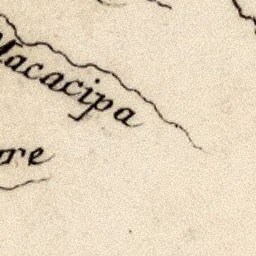 Macacipa
ore